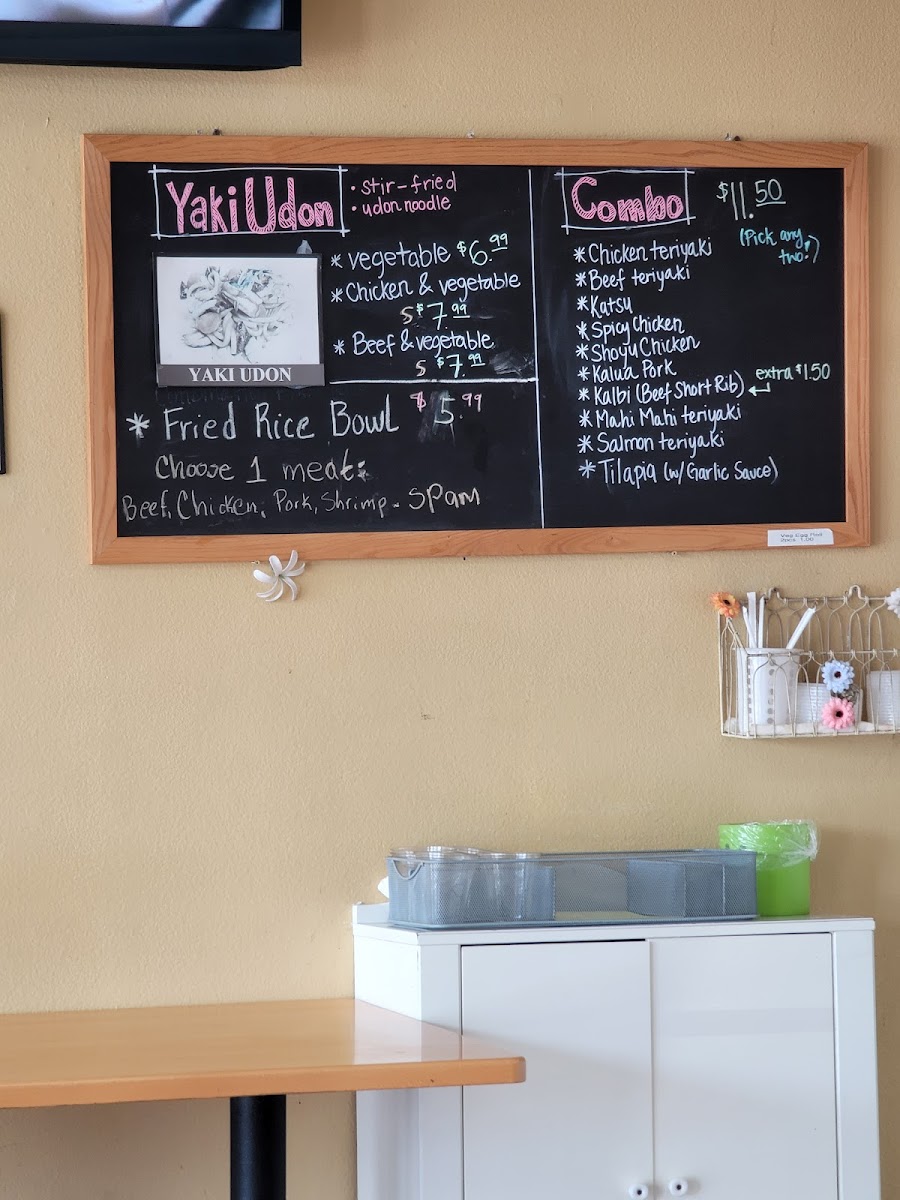 Yaki Udon
• stir-fried
• udon noodle
* vegetable $6.99
* Chicken & vegetable
5 $7.99
* Beef & vegetable
5 $7.99
YAKI UDON
* Fried Rice Bowl $5.99
Choose 1 meat:
Beef, Chicken, Pork, Shrimp. SPAM
Combo $11.50
(Pick any
two!)
* Chicken teriyaki
* Beef teriyaki
* Katsu
* Spicy Chicken
* Shoyu Chicken
* Kalua Pork
* Kalbi (Beef Short Rib) extra $1.50
* Mahi Mahi teriyaki
* Salmon teriyaki
* Tilapia (w/ Garlic Sauce)